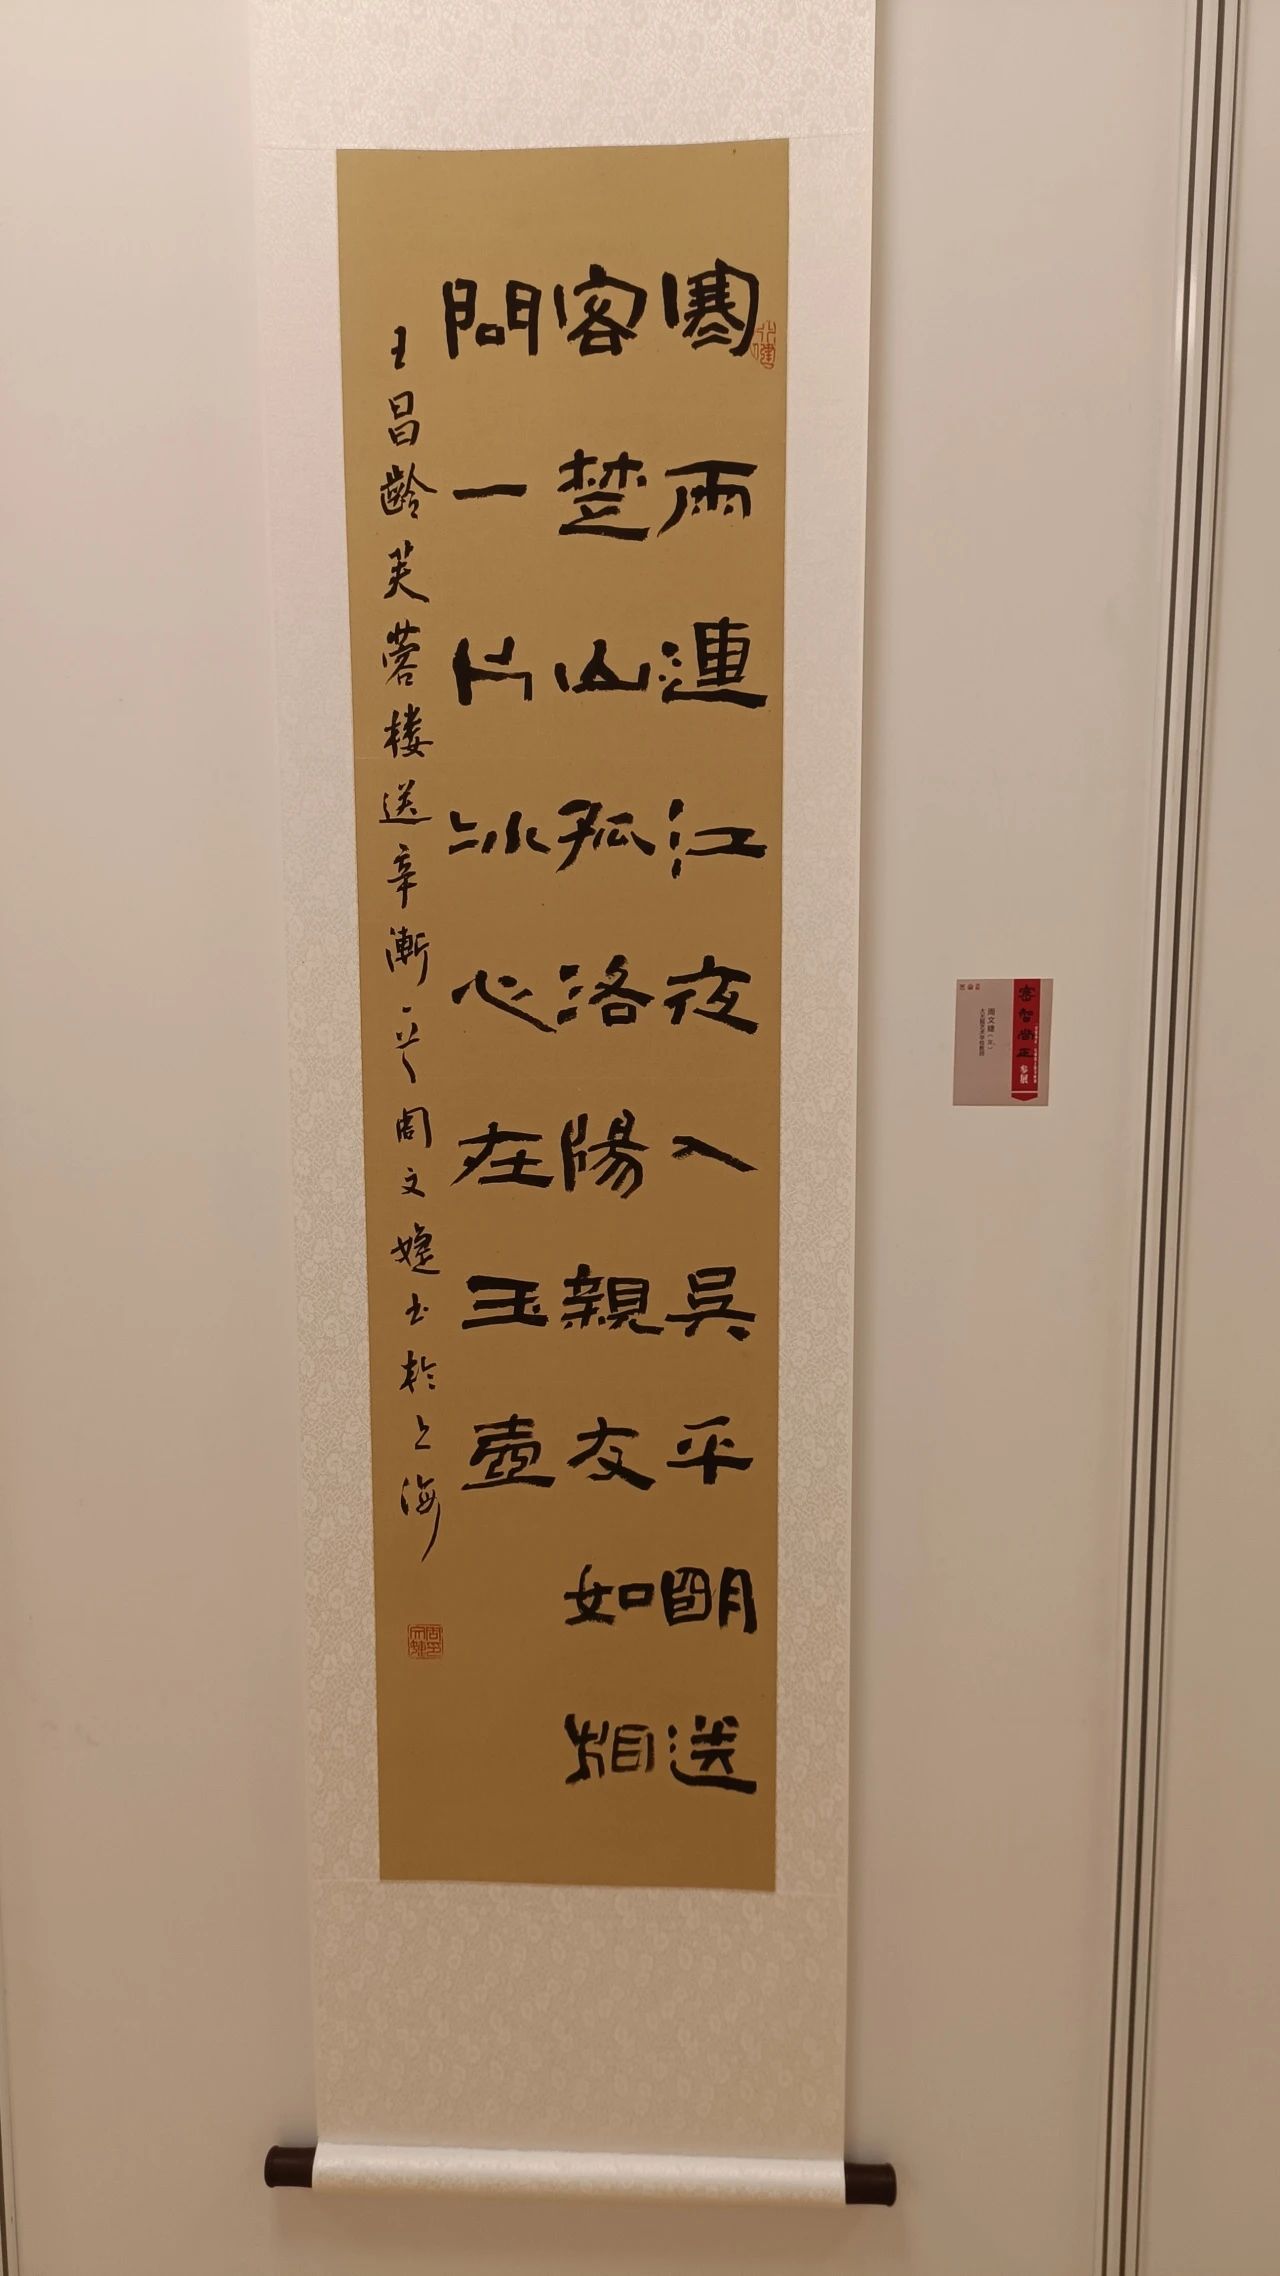 寒雨連江夜入吳平明送
客楚山孤洛陽親友如相
問一片冰心在玉壺
王昌齡芙蓉楼送辛漸一首周文婕书於上海
周文婕
参展